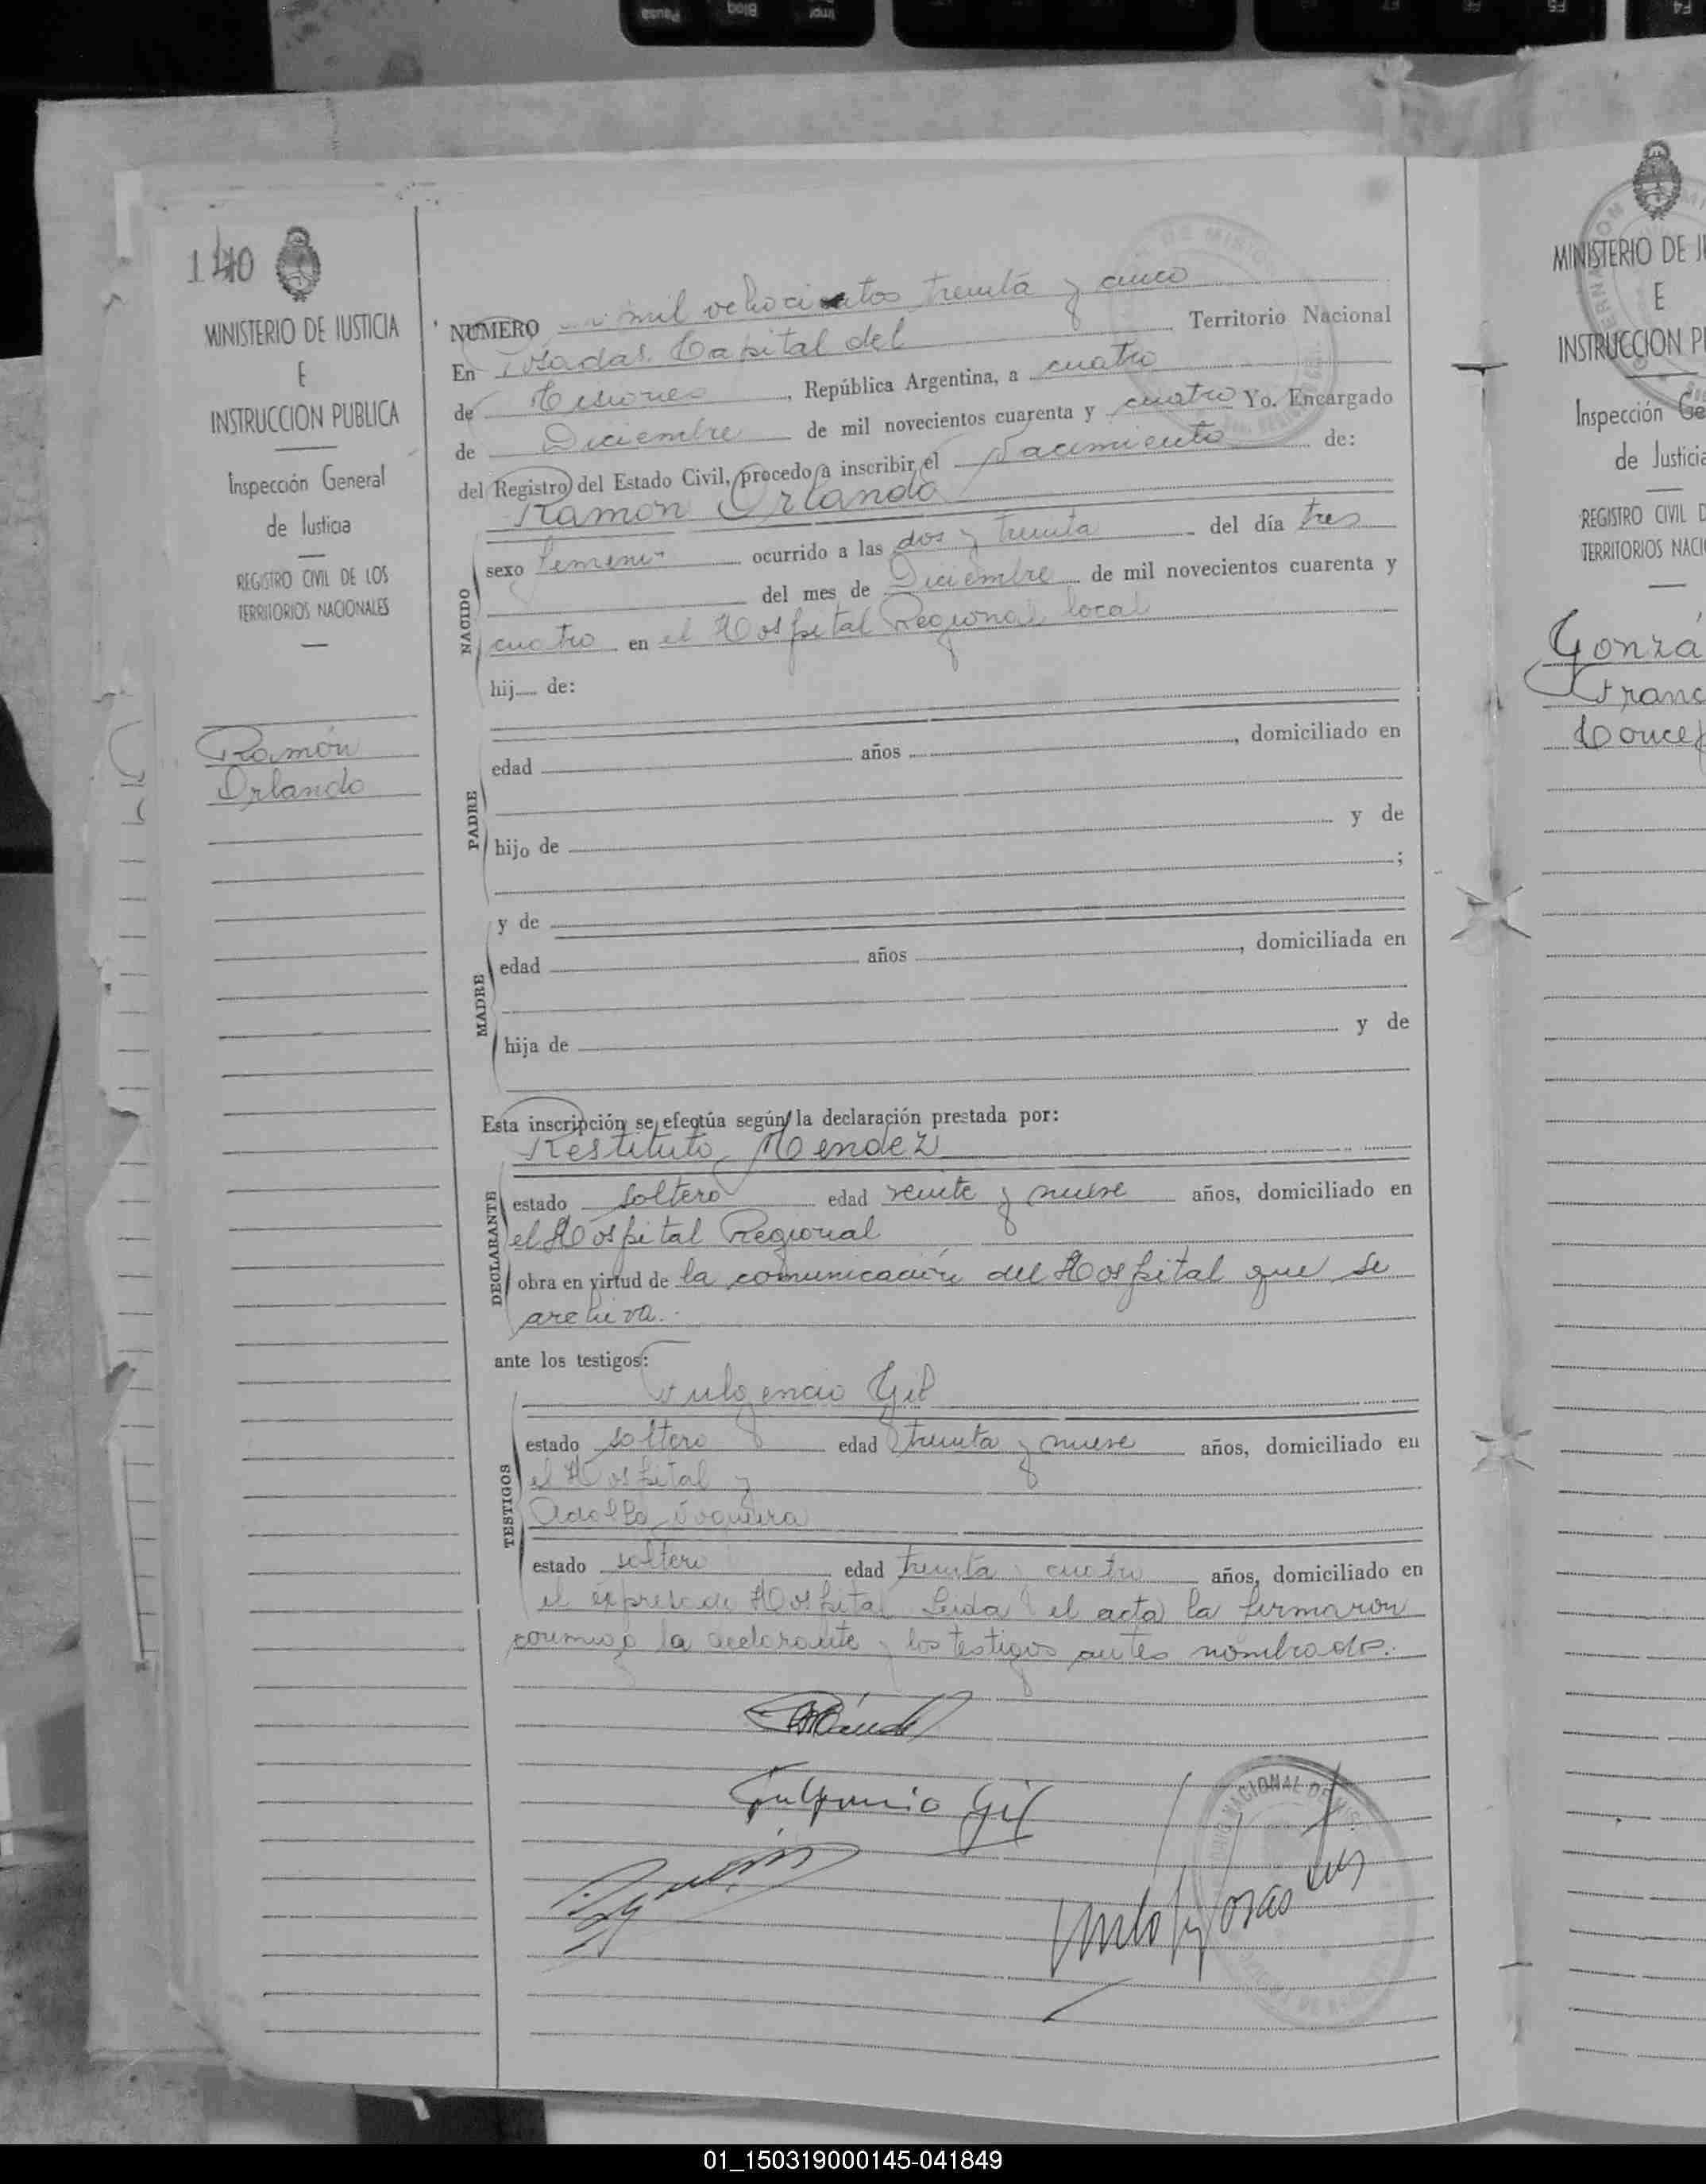 Pausa
Bloq
Impr
F5
F4
140
MINISTERIO DE JUSTICIA
E
INSTRUCCION PUBLICA
Inspección General
de Justicia
REGISTRO CIVIL DE LOS
TERRITORIOS NACIONALES
Ramón
Orlando
NUMERO mil ochocientos treinta y cinco
En Posadas Capital del Territorio Nacional
de Misiones, República Argentina, a cuatro
de Diciembre de mil novecientos cuarenta y cuatro Yo. Encargado
del Registro del Estado Civil, procedo a inscribir el Nacimiento de:
Ramon Orlando
NACIDO
sexo femeni ocurrido a las dos y treinta del día tres
del mes de Diciembre de mil novecientos cuarenta y
cuatro en el Hospital Regional local
hij de:
PADRE
edad años , domiciliado en
hijo de y de
;
MADRE
y de
edad años , domiciliada en
hija de y de
Esta inscripción se efectúa según la declaración prestada por:
Restituto Mendez
DECLARANTE
estado soltero edad veinte y nueve años, domiciliado en
el Hospital Regional
obra en virtud de la comunicación del Hospital que se
archiva.-
ante los testigos:
Fulgencio Gil
TESTIGOS
estado soltero edad treinta y nueve años, domiciliado en
el Hospital y
Adolfo
estado soltero edad treinta y cuatro años, domiciliado en
el expresado Hospital Leida el acta la firmaron
conmigo la declarante y los testigos antes nombrados.
Fulgencio Gil
MINISTERIO DE JU
E
INSTRUCCION P
Inspección Ge
de Justicia
REGISTRO CIVIL D
TERRITORIOS NACI
Gonzá
Franc
Concep
01_150319000145-041849